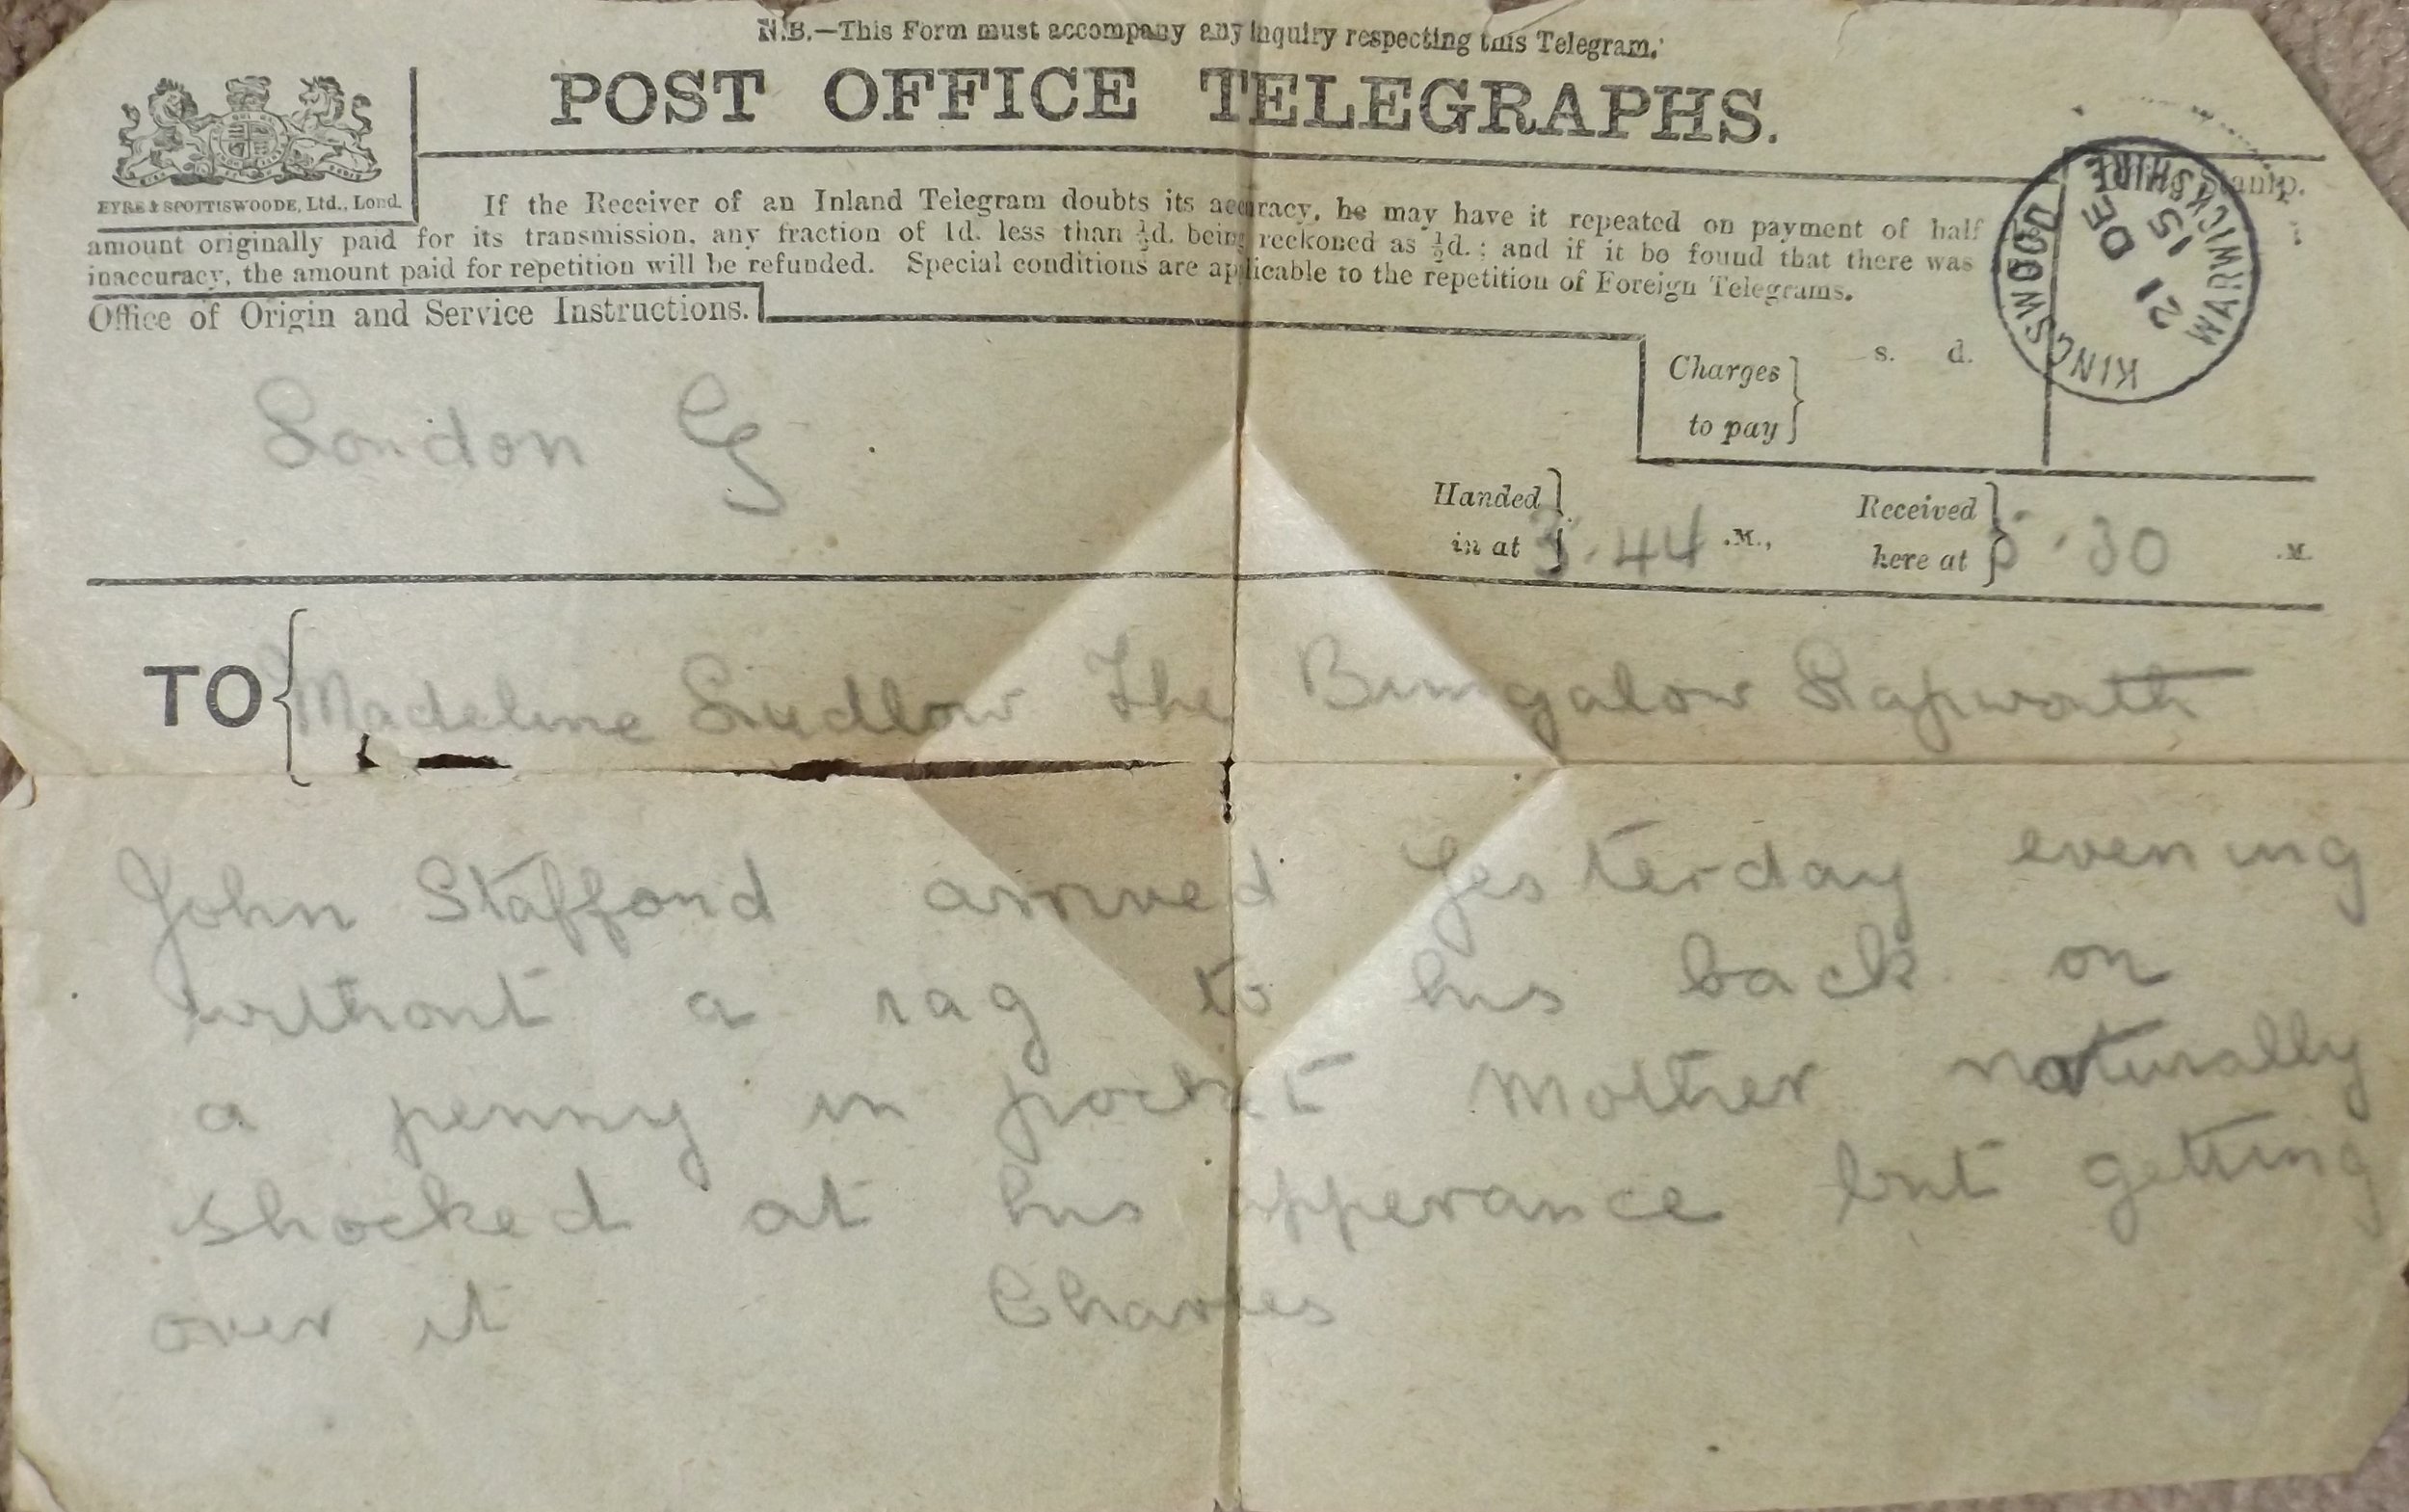 N.B.—This Form must accompany any inquiry respecting this Telegram.
POST OFFICE TELEGRAPHS.
EYRE & SPOTTISWOODE, Ltd., Lond.
If the Receiver of an Inland Telegram doubts its accuracy, he may have it repeated on payment of half
amount originally paid for its transmission, any fraction of 1d. less than ½d. being reckoned as ½d.; and if it be found that there was
inaccuracy, the amount paid for repetition will be refunded. Special conditions are applicable to the repetition of Foreign Telegrams.
Office of Origin and Service Instructions.
Stamp.
KINGSWOOD WARWICKSHIRE
21 DE 15
London
Charges to pay } s. d.
Handed in at } 3.44 .M.,
Received here at } 5.30 .M.
TO { Madeline Ludlow The Bungalow Lapworth
John Stafford arrived yesterday evening
without a rag to his back on
a penny in pocket Mother naturally
shocked at his apperance but getting
over it Charles